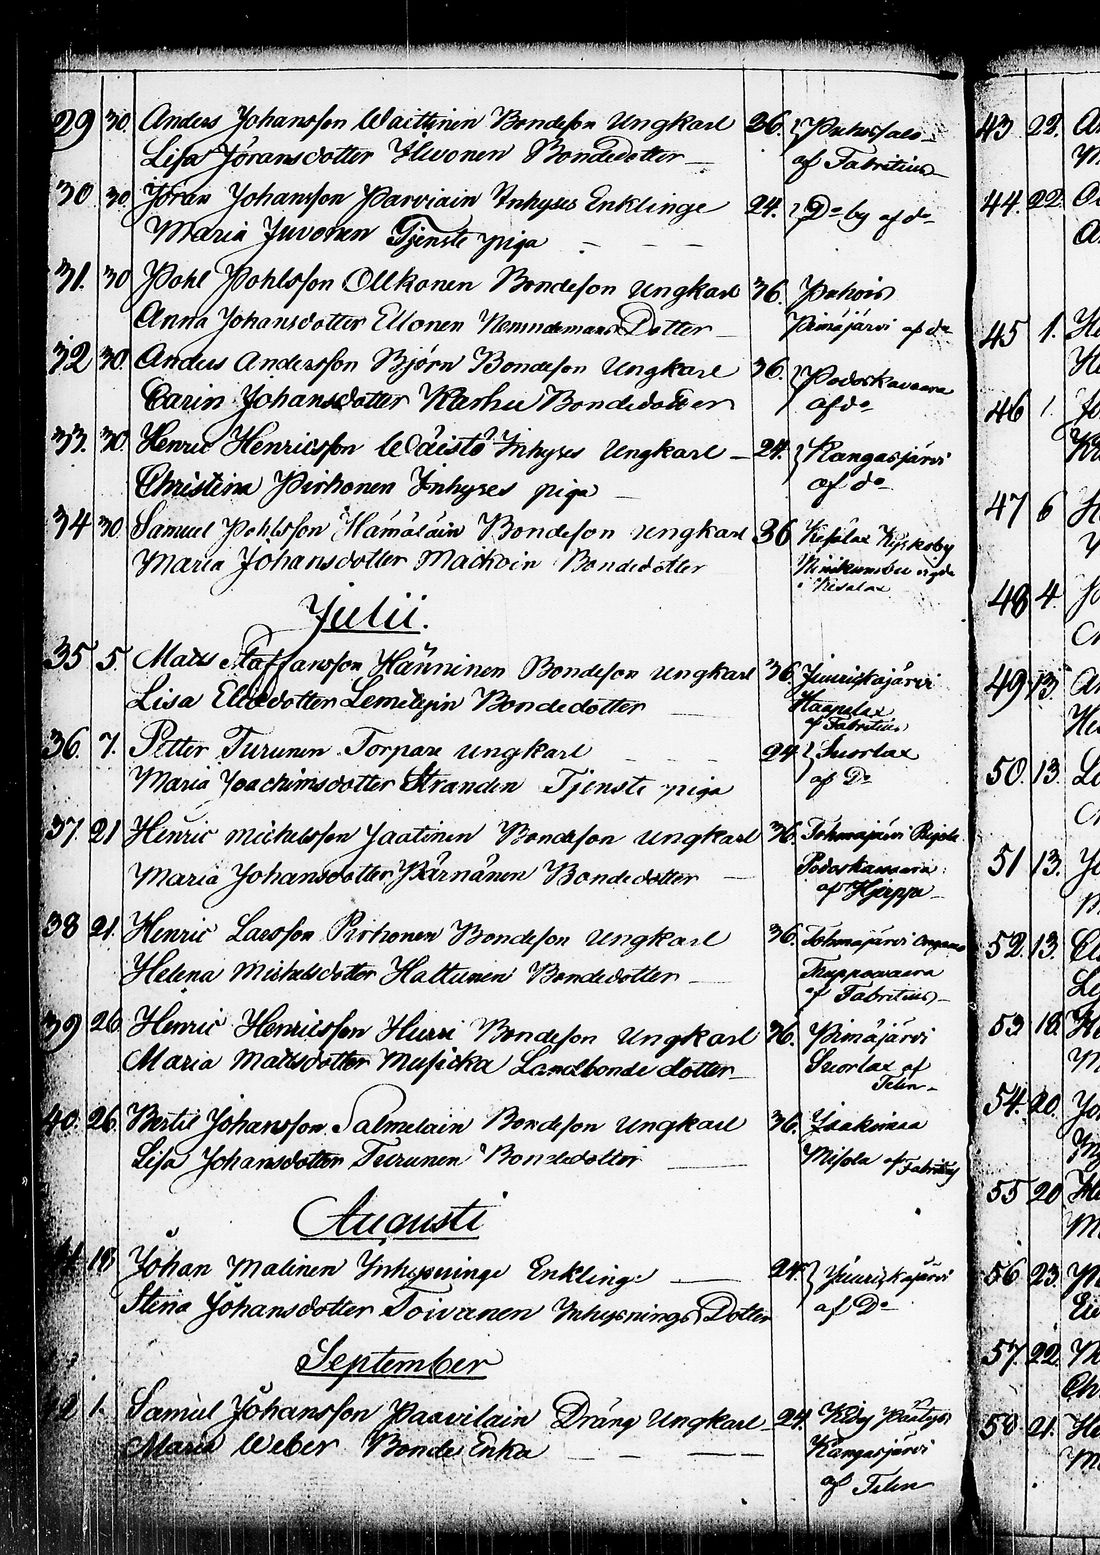 29 30. Anders Johansson Waittinen Bondeson Ungkarl 36.
Lisa Jöransdotter Ihvonen Bondedotter af Fabritius
30 30 Jöran Johansson Parviain Inhyses Enklinge 24. Do by af do
Maria Juvonen Tjenste piga
31. 30 Pohl Pohlsson Ollkonen Bondeson Ungkarl 36. Puhois
Anna Johansdotter Ellonen Nemndemans Dotter Pimäjärvi af do
32 30. Anders Andersson Björn Bondeson Ungkarl 36. Podoskavaara
Carin Johansdotter Karhu Bondedotter af do
33. 30. Henric Henricsson Wäistö Inhyses Ungkarl 24. Kangasjärvi
Christina Pirhonen Inhyses piga af do
34 30. Samuel Pohlsson Hämäläin Bondeson Ungkarl 36 Kesälax Kyrkoby
Maria Johansdotter Madkoin Bondedotter vigde
i Kesälax
Julii.
35 5. Matts Staffansson Hänninen Bondeson Ungkarl 36. Juurikajärvi
Lisa Eliedotter Lemetyin Bondedotter Haapalax
af Fabritius
36. 7. Petter Turunen Torpare Ungkarl 24 Suorlax
Maria Joachimsdotter Stranden Tjenste piga af Do
37. 21 Henric Michelsson Jaatinen Bondeson Ungkarl 36. Tohmajärvi
Maria Johansdotter Pärnänen Bondedotter Podoskavaara
af Hjerppe
38 21. Henric Larsson Pirhonen Bondeson Ungkarl 36. Tohmajärvi
Helena Michelsdotter Hattunen Bondedotter
af Fabritius
39 26 Henric Henricsson Hurri Bondeson Ungkarl 36. Pimäjärvi
Maria Mattsdotter Musicka Landbonde dotter Suorlax af
Telin
40. 26. Bertil Johansson Salmelain Bondeson Ungkarl 36. Jaakimaa
Lisa Johansdotter Turunen Bondedotter Misola af Fabritius
Augusti
41. 18 Johan Malinen Inhysninge Enklinge 24. Juurikajärvi
Stina Johansdotter Toivanen Inhysnings Dotter af Do
September
42 1. Samuel Johansson Paavilain Dräng Ungkarl 24.
Maria Weber Bonde Enka Kangasjärvi
af Telin
43 22.
44. 22.
45 1.
46 1.
47 6
48 4.
49. 13.
50. 13.
51 13.
52. 13.
53 18.
54. 20.
55 20
56 23.
57. 22.
58 21.